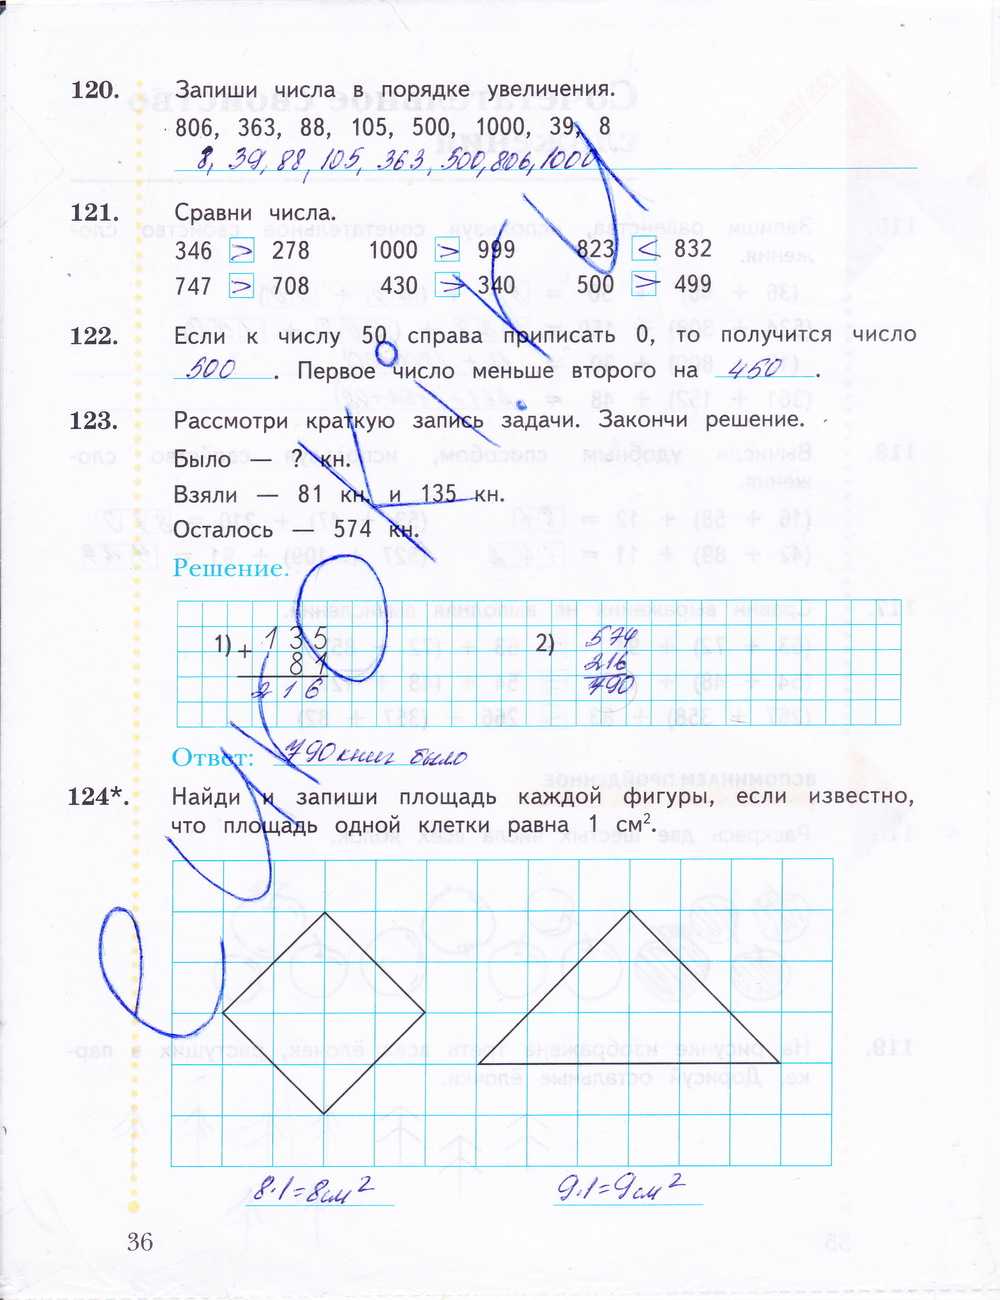 120. Запиши числа в порядке увеличения.
806, 363, 88, 105, 500, 1000, 39, 8
8, 39, 88, 105, 363, 500, 806, 1000
121. Сравни числа.
346 > 278 1000 > 999 823 < 832
747 > 708 430 > 340 500 > 499
122. Если к числу 50 справа приписать 0, то получится число
500 . Первое число меньше второго на 450 .
123. Рассмотри краткую запись задачи. Закончи решение.
Было — ? кн.
Взяли — 81 кн. и 135 кн.
Осталось — 574 кн.
Решение.
1) + 135 2) 574
81 216
216 790
Ответ: 790 книг было
124*. Найди и запиши площадь каждой фигуры, если известно,
что площадь одной клетки равна 1 см².
8·1=8см² 9·1=9см²
36